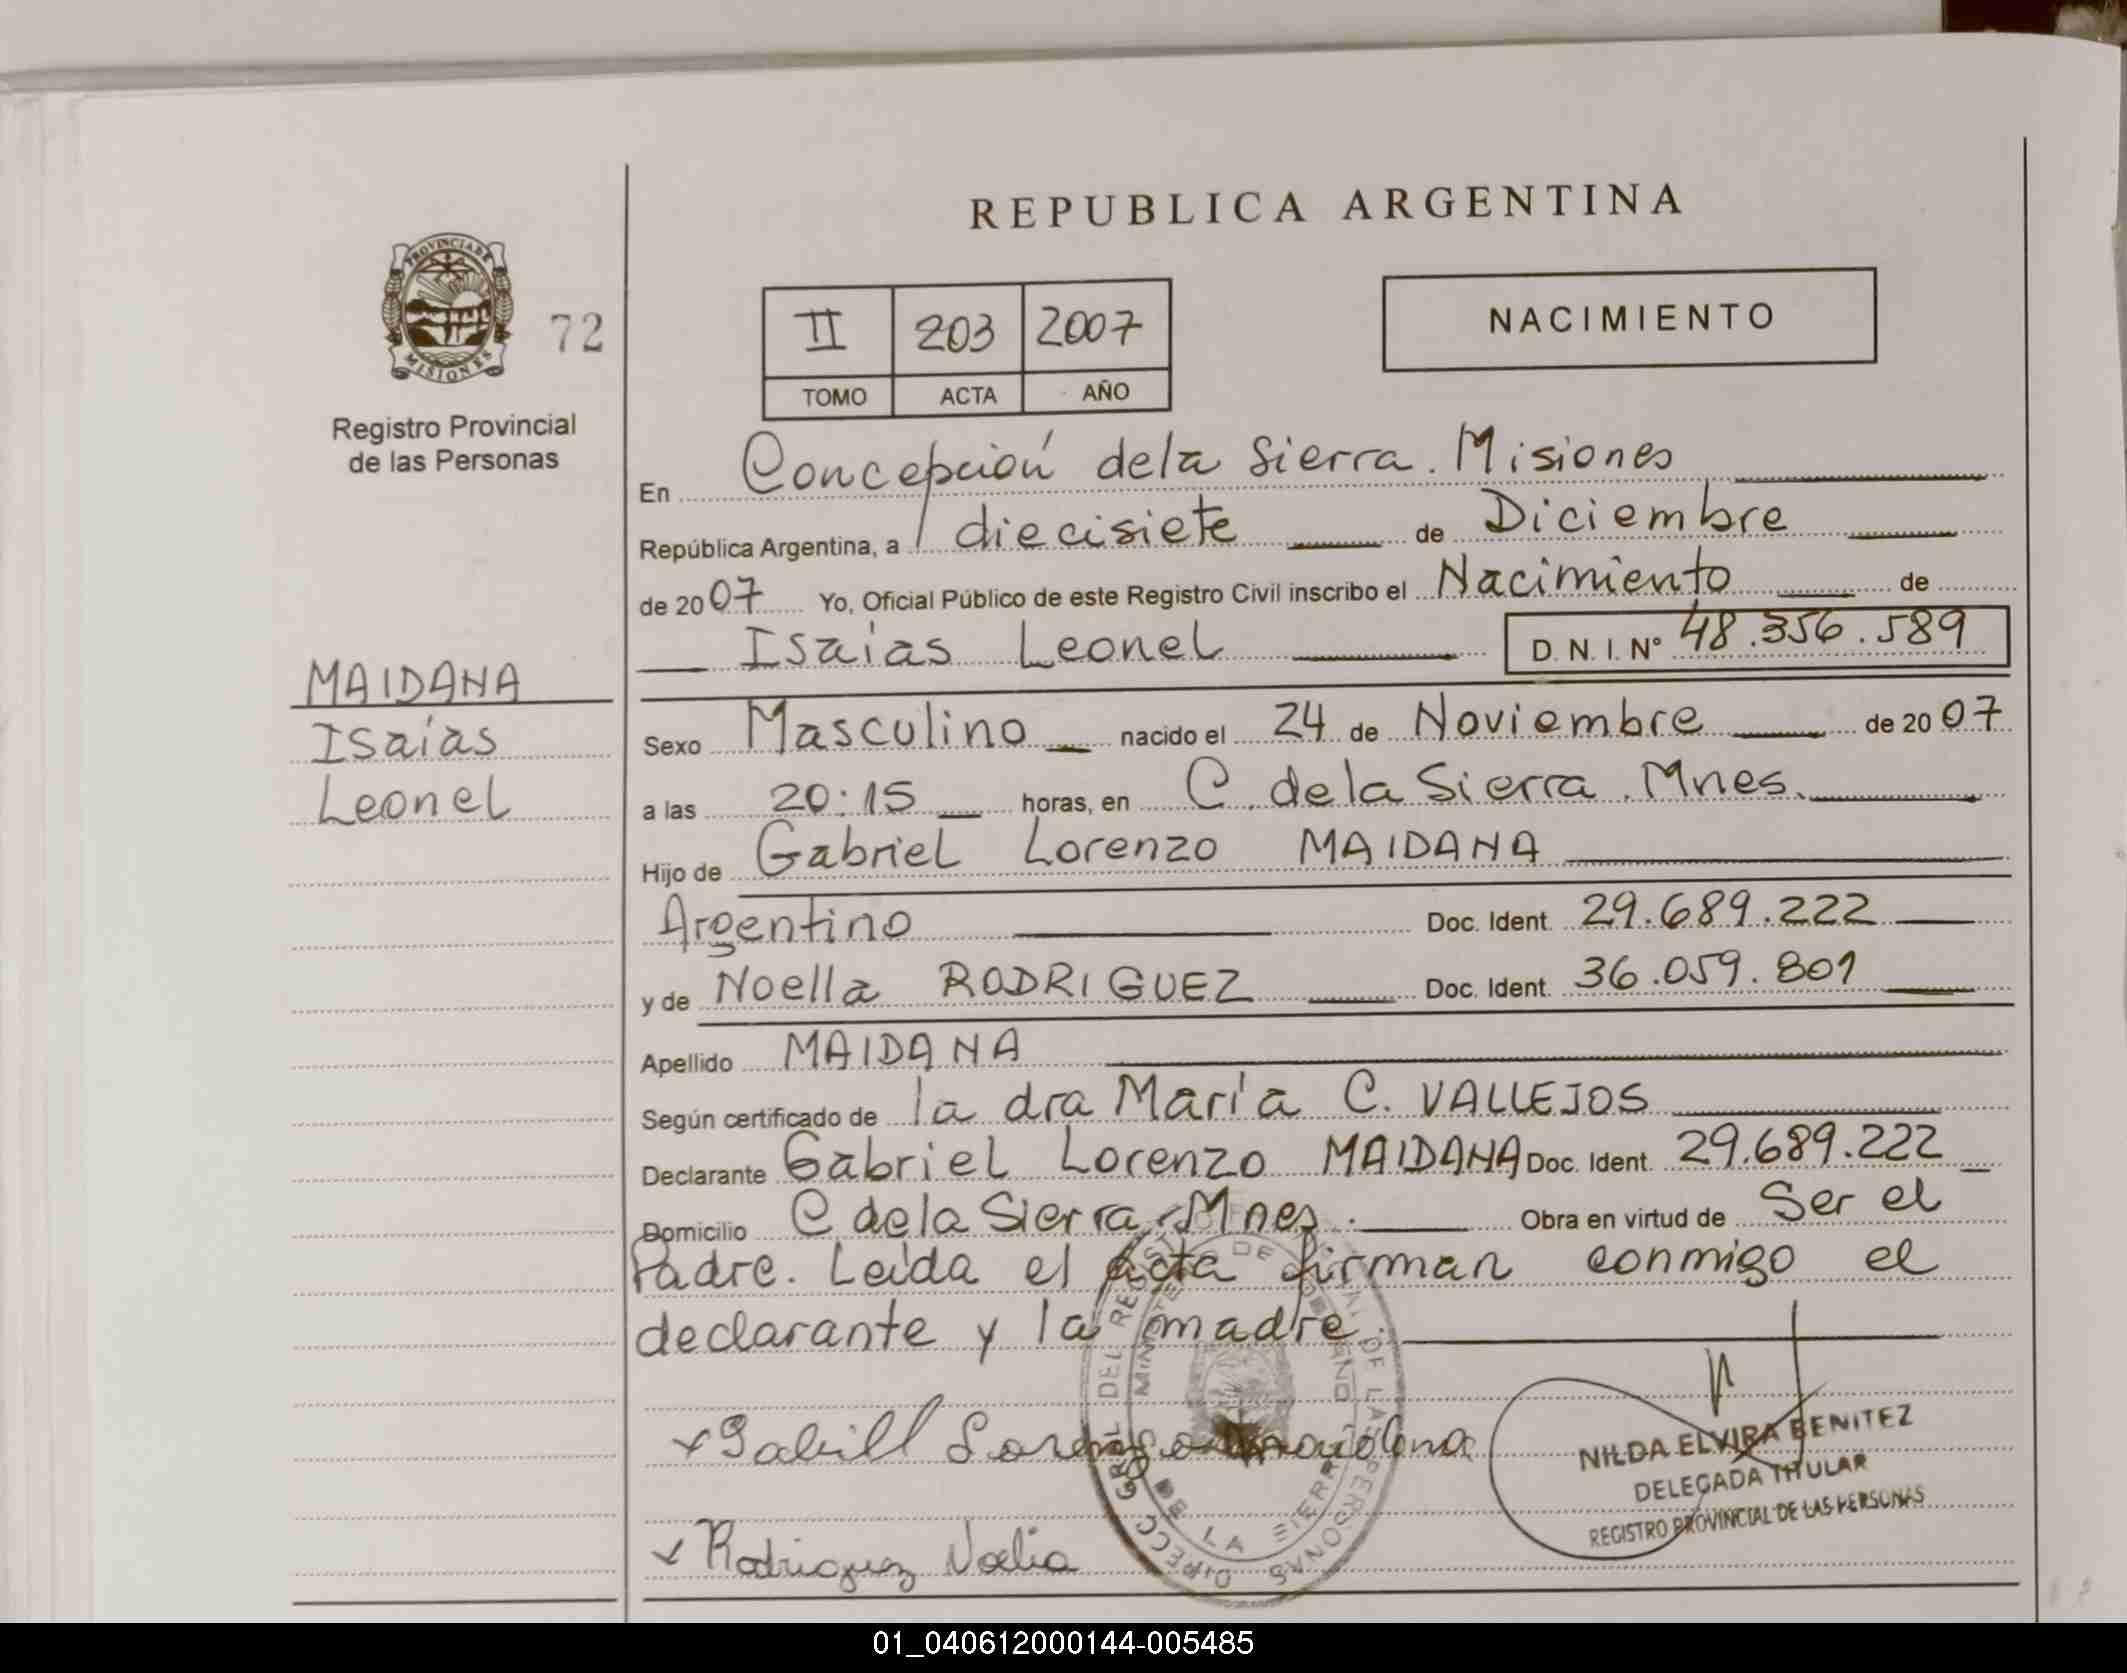 REPUBLICA ARGENTINA
PROVINCIA DE
MISIONES
72
Registro Provincial
de las Personas
II 203 2007
TOMO ACTA AÑO
NACIMIENTO
En Concepción dela Sierra. Misiones
República Argentina, a diecisiete de Diciembre
de 2007 Yo, Oficial Público de este Registro Civil inscribo el Nacimiento de
Isaías Leonel D. N. I. Nº 48.356.589
MAIDANA
Isaías
Leonel
Sexo Masculino nacido el 24 de Noviembre de 2007
a las 20:15 horas, en C. dela Sierra. Mnes.
Hijo de Gabriel Lorenzo MAIDANA
Argentino Doc. Ident. 29.689.222
y de Noelia RODRIGUEZ Doc. Ident. 36.059.801
Apellido MAIDANA
Según certificado de la dra María C. VALLEJOS
Declarante Gabriel Lorenzo MAIDANA Doc. Ident. 29.689.222
Domicilio C dela Sierra. Mnes. Obra en virtud de Ser el
Padre. Leída el acta firman conmigo el
declarante y la madre.
Lorenzo
NILDA ELVIRA BENITEZ
DELEGADA TITULAR
REGISTRO PROVINCIAL DE LAS PERSONAS
x Rodriguez Noelia
DE LA SIERRA
01_040612000144-005485